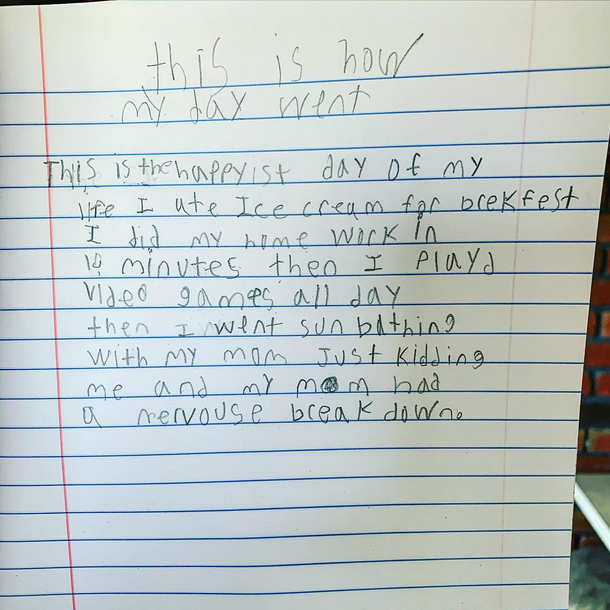 this is how
my day went
This is the happyist day of my
life I ate Ice cream for brekfest
I did my home work in
10 minutes then I Playd
video games all day
then I went sun bathing
with my mom Just kidding
me and my mom had
a nervouse break down.